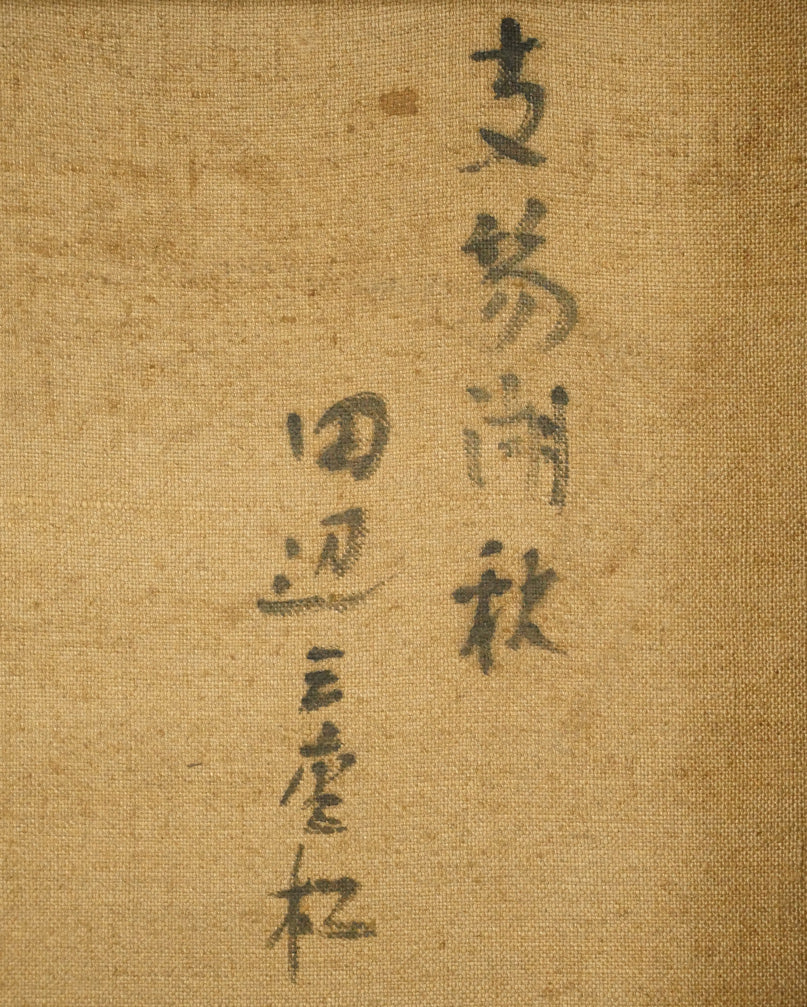 支笏湖秋
田辺三重松